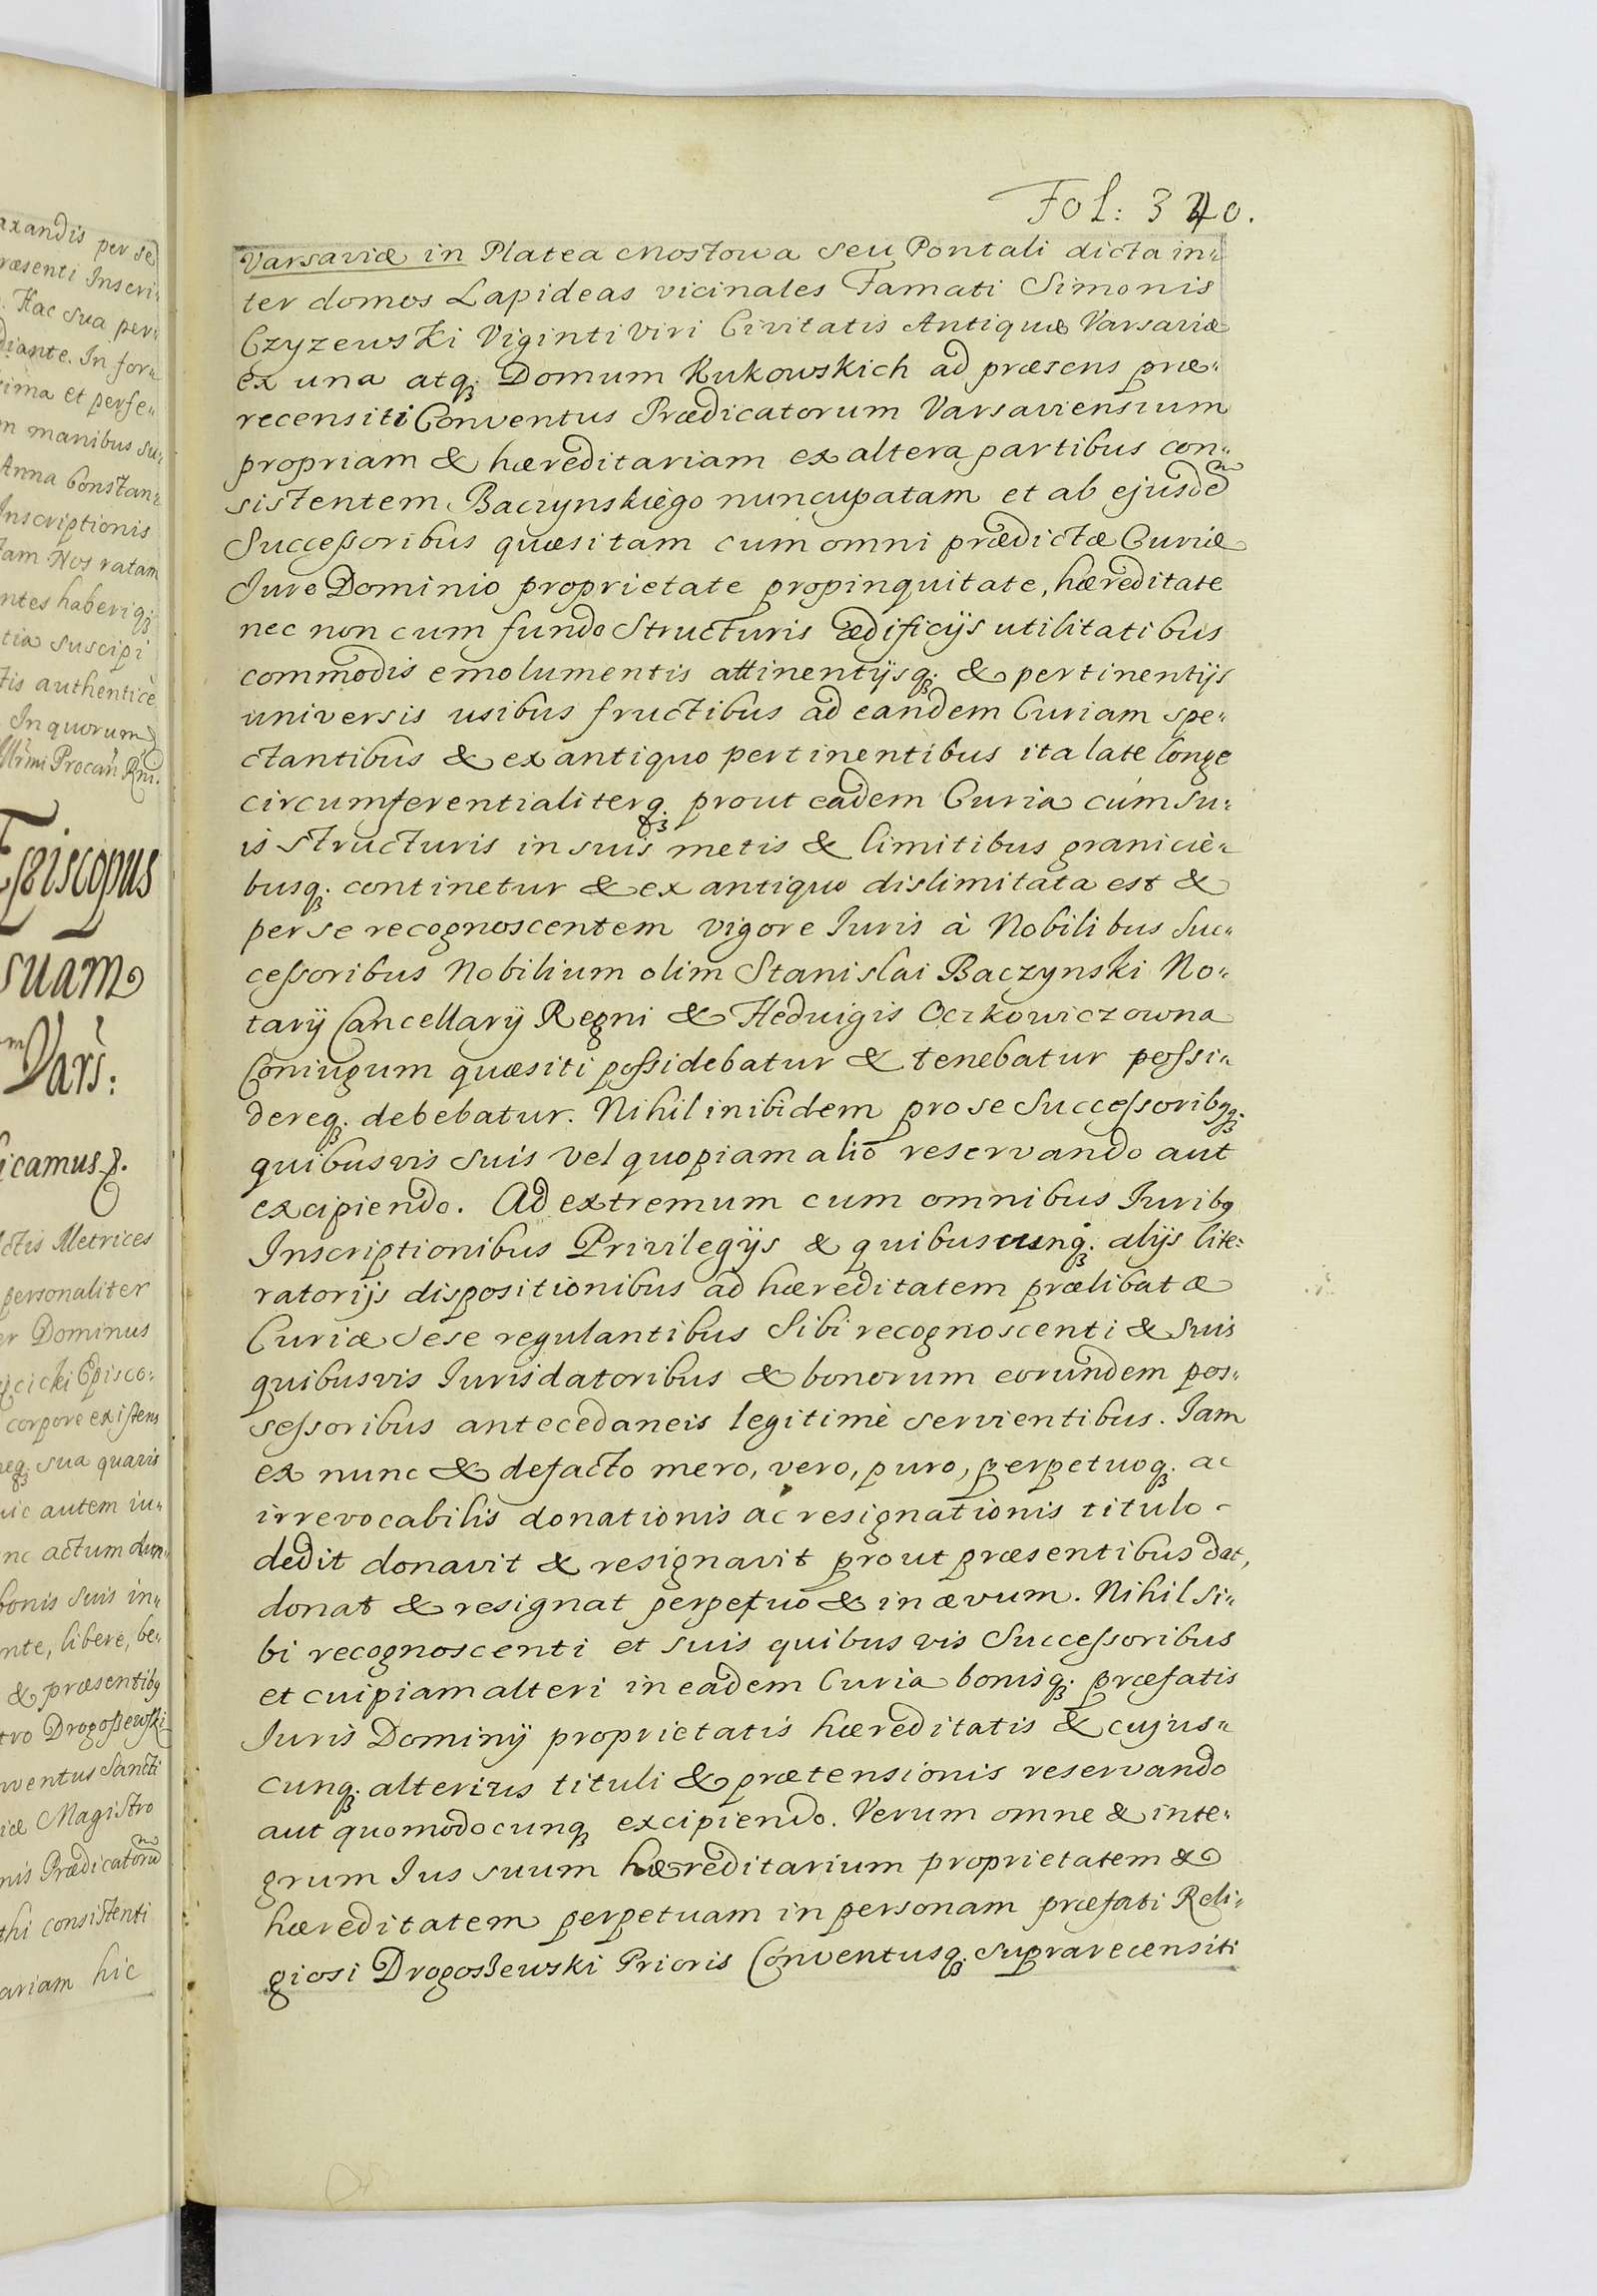 axandis per se
ræsenti Inscri„
Hac sua per„
diante. In for„
sima et perfe„
m manibus su„
Anna Constan„
Inscriptionis
tam Nos ratam
ntes haberi q;
tia suscipi
tis authenticè
In quorum
Illrmi Procan Rni.
Episcopus
suam
m Vars:
icamus
ctis Metrices
personaliter
er Dominus
cicki Episco„
corpore existens
eq; sua quavis
uic autem in„
nc actum
bonis suis in„
nte, liberè, be„
& præsentibq
tro Drogoszewski
nventus Sancti
iæ Magistro
nis Prædicatorũ
thi consistenti
ariam hic
Fol: 340.
Varsaviæ in Platea Mostowa seu Pontali dicta in„
ter domos Lapideas vicinales Famati Simonis
Czyzewski Viginti Viri Civitatis Antiquæ Varsaviæ
ex una atq; Domum Kukowskich ad præsens præ„
recensiti Conventus Prædicatorum Varsaviensium
propriam & hæreditariam ex altera partibus con„
sistentem Baczynskiego nuncupatam et ab ejusdẽ
Successoribus quæsitam cum omni prædictæ Curiæ
Iure Dominio proprietate propinquitate, hæreditate
nec non cum fundo Structuris ædificijs utilitatibus
commodis emolumentis attinentijsq; & pertinentijs
universis usibus fructibus ad eandem Curiam spe„
ctantibus & ex antiquo pertinentibus ita late longe
circumferentialiterq; prout eadem Curia cum su„
is structuris in suis metis & limitibus granicie„
busq; continetur & ex antiquo dislimitata est &
per se recognoscentem vigore Iuris à Nobilibus Suc„
cessoribus Nobilium olim Stanislai Baczynski No„
tarij Cancellarij Regni & Heduigis Oczkowiczowna
Coniugum quæsiti possidebatur & tenebatur possi„
dereq; debebatur. Nihil inibidem pro se Successoribqq;
quibusvis suis vel quopiam alio reservando aut
excipiendo. Ad extremum cum omnibus Iuribq
Inscriptionibus Privilegijs & quibuscunq; alijs lite„
ratorijs dispositionibus ad hæreditatem prælibatæ
Curiæ sese regulantibus Sibi recognoscenti & suis
quibusvis Iurisdatoribus & bonorum eorundem pos„
sessoribus antecedaneis legitimè servientibus. Iam
ex nunc & defacto mero, vero, puro, perpetuoq; ac
irrevocabilis donationis ac resignationis titulo
dedit donavit & resignavit prout præsentibus dat,
donat & resignat perpetuo & in ævum. Nihil si„
bi recognoscenti et suis quibusvis Successoribus
et cuipiam alteri in eadem Curia bonisq; præfatis
Iuris Dominij proprietatis hæreditatis & cujus„
cunq; alterius tituli & prætensionis reservando
aut quomodocunq; excipiendo. Verum omne & inte„
grum Ius suum hæreditarium proprietatem &
hæreditatem perpetuam in personam præfati Reli„
giosi Drogoszewski Prioris Conventusq; suprarecensiti